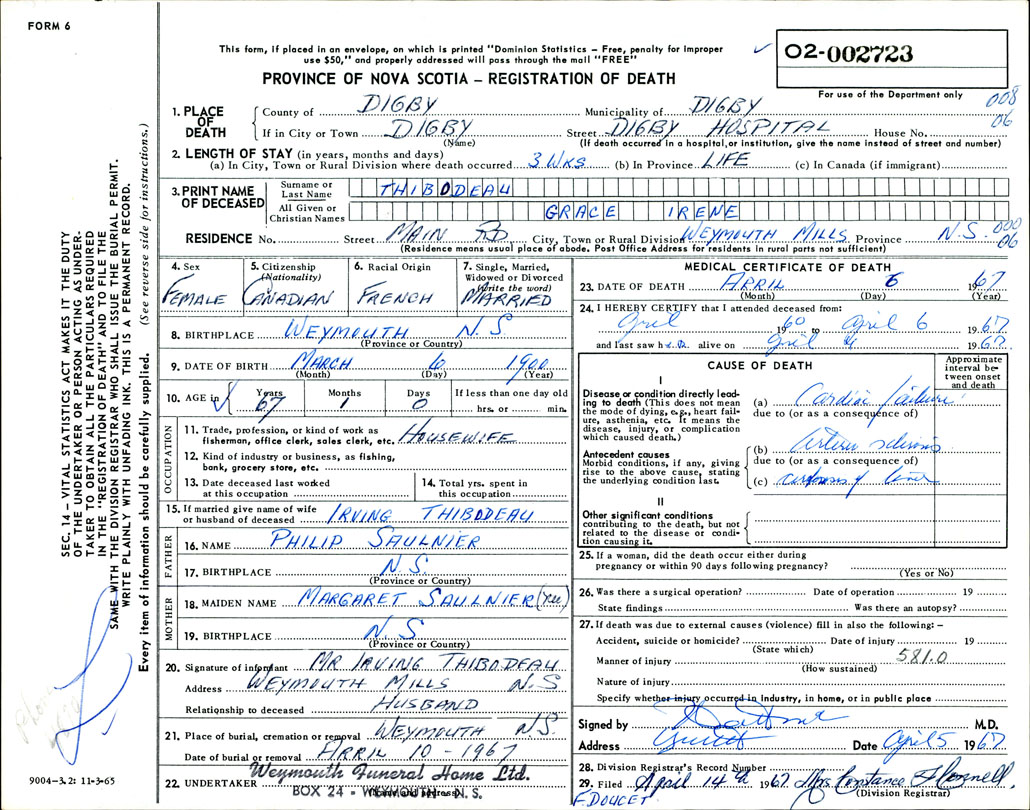 FORM 6
This form, if placed in an envelope, on which is printed "Dominion Statistics – Free, penalty for improper
use $50," and properly addressed will pass through the mail "FREE"
PROVINCE OF NOVA SCOTIA – REGISTRATION OF DEATH
✓ O2-002723
For use of the Department only
008
06
1. PLACE OF DEATH
County of DIGBY Municipality of DIGBY
If in City or Town DIGBY Street DIGBY HOSPITAL House No.
(Name) (If death occurred in a hospital, or institution, give the name instead of street and number)
2. LENGTH OF STAY (in years, months and days)
(a) In City, Town or Rural Division where death occurred 3 WKS (b) In Province LIFE (c) In Canada (if immigrant)
3. PRINT NAME OF DECEASED
Surname or Last Name THIBODEAU
All Given or Christian Names GRACE IRENE
RESIDENCE No. Street MAIN RD City, Town or Rural Division WEYMOUTH MILLS Province N.S. 000
06
(Residence means usual place of abode. Post Office Address for residents in rural parts not sufficient)
4. Sex FEMALE
5. Citizenship (Nationality) CANADIAN
6. Racial Origin FRENCH
7. Single, Married, Widowed or Divorced (Write the word) MARRIED
8. BIRTHPLACE WEYMOUTH N.S
(Province or Country)
9. DATE OF BIRTH MARCH 6 1900
(Month) (Day) (Year)
10. AGE in ✓ Years 67 Months 1 Days 0 If less than one day old
hrs. or min.
OCCUPATION
11. Trade, profession, or kind of work as
fisherman, office clerk, sales clerk, etc. HOUSEWIFE
12. Kind of industry or business, as fishing,
bank, grocery store, etc.
13. Date deceased last worked
at this occupation
14. Total yrs. spent in
this occupation
15. If married give name of wife
or husband of deceased IRVING THIBODEAU
FATHER
16. NAME PHILIP SAULNIER
17. BIRTHPLACE N.S.
(Province or Country)
MOTHER
18. MAIDEN NAME MARGARET SAULNIER (Yes)
19. BIRTHPLACE N.S
(Province or Country)
20. Signature of informant MR IRVING THIBODEAU
Address WEYMOUTH MILLS N.S
Relationship to deceased HUSBAND
21. Place of burial, cremation or removal WEYMOUTH N.S.
Date of burial or removal APRIL 10 - 1967
22. UNDERTAKER Weymouth Funeral Home Ltd.
BOX 24 - WEYMOUTH N. S.
(Name and address)
MEDICAL CERTIFICATE OF DEATH
23. DATE OF DEATH APRIL 6 1967
(Month) (Day) (Year)
24. I HEREBY CERTIFY that I attended deceased from:
April 1960 to April 6 1967
and last saw h er alive on April 4 1967
CAUSE OF DEATH
Approximate interval between onset and death
I
Disease or condition directly leading to death (This does not mean the mode of dying, e.g., heart failure, asthenia, etc. It means the disease, injury, or complication which caused death.)
(a) Cardiac failure
due to (or as a consequence of)
Antecedent causes
Morbid conditions, if any, giving rise to the above cause, stating the underlying condition last.
(b)
due to (or as a consequence of)
(c) cirrhosis of liver
II
Other significant conditions
contributing to the death, but not related to the disease or condition causing it.
25. If a woman, did the death occur either during
pregnancy or within 90 days following pregnancy?
(Yes or No)
26. Was there a surgical operation? Date of operation 19
State findings Was there an autopsy?
27. If death was due to external causes (violence) fill in also the following: –
Accident, suicide or homicide? Date of injury 19
(State which)
Manner of injury 581.0
(How sustained)
Nature of injury
Specify whether injury occurred in industry, in home, or in public place
Signed by M.D.
Address Date April 5 1967
28. Division Registrar's Record Number
29. Filed April 14th 1967 Mrs Constance
F. DOUCET (Division Registrar)
SEC. 14 – VITAL STATISTICS ACT MAKES IT THE DUTY
OF THE UNDERTAKER OR PERSON ACTING AS UNDER-
TAKER TO OBTAIN ALL THE PARTICULARS REQUIRED
IN THE "REGISTRATION OF DEATH" AND TO FILE THE
SAME WITH THE DIVISION REGISTRAR WHO SHALL ISSUE THE BURIAL PERMIT.
WRITE PLAINLY WITH UNFADING INK. THIS IS A PERMANENT RECORD.
Every item of information should be carefully supplied. (See reverse side for instructions.)
9004-3.2: 11-3-65